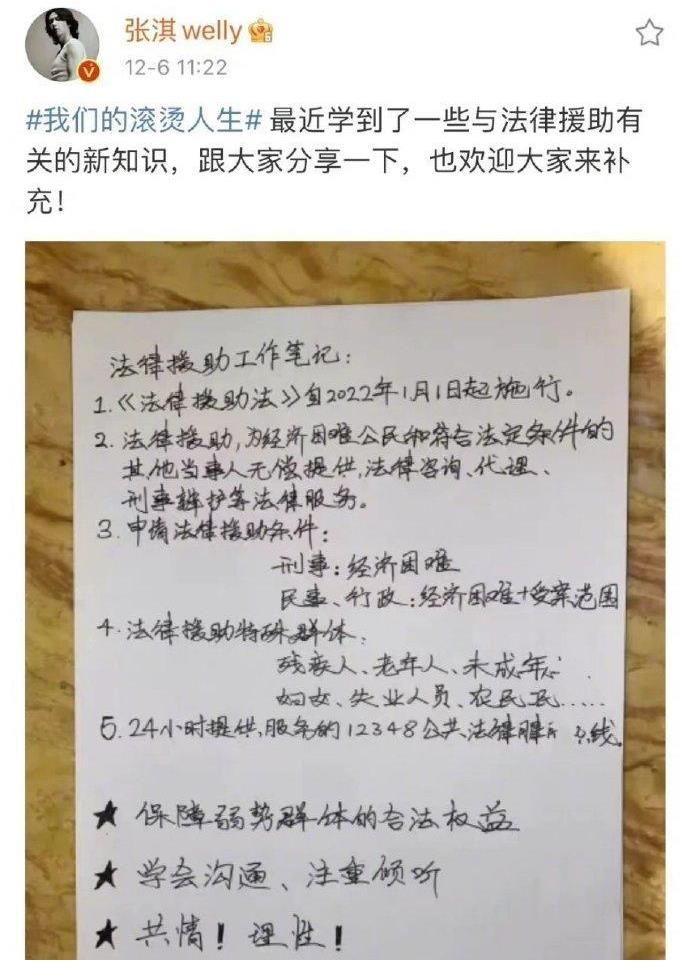 张淇welly
12-6 11:22
#我们的滚烫人生# 最近学到了一些与法律援助有
关的新知识，跟大家分享一下，也欢迎大家来补
充！
法律援助工作笔记：
1.《法律援助法》自2022年1月1日起施行。
2. 法律援助，为经济困难公民和符合法定条件的
其他当事人无偿提供，法律咨询、代理、
刑事辩护等法律服务。
3. 申请法律援助条件：
刑事：经济困难
民事、行政：经济困难+受案范围
4. 法律援助特殊群体：
残疾人、老年人、未成年
妇女、失业人员、农民
5. 24小时提供服务的12348公共法律 线
★ 保障弱势群体的合法权益
★ 学会沟通、注重倾听
★ 共情！理性！